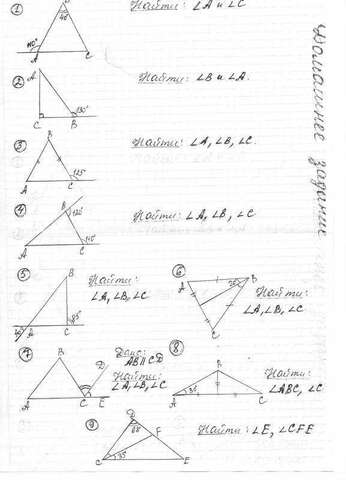 Домашнее задание
① Найти: ∠A и ∠C
B
40°
110°
A
C
② Найти: ∠B и ∠A.
A
130°
C
B
③ Найти: ∠A, ∠B, ∠C.
B
125°
A
C
④ Найти: ∠A, ∠B, ∠C
B
120°
110°
A
C
⑤ Найти:
∠A, ∠B, ∠C
B
85°
A
C
⑥ Найти:
∠A, ∠B, ∠C
A
B
C
⑦ Дано:
AB∥CD
Найти:
∠A, ∠B, ∠C
B
D
A
C
E
⑧ Найти:
∠ABC, ∠C
B
A
C
⑨ Найти: ∠E, ∠CFE
D
F
C
E